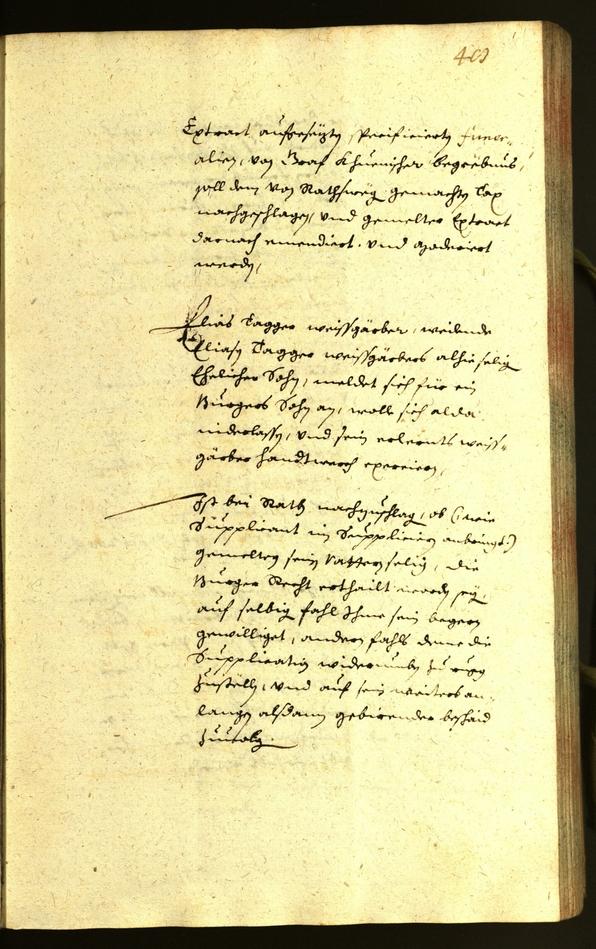 Extract aufgesezten, specificierten funer-
alien, von Graf Khuenischer begrebnus,
soll dem von Rathsweg gemachten Tax
nachgeschlagen, und gemelter Extract
darnach emendiert, und
werden,
Elias Tagger weissgärber, weilende
Eliasen Taggers weissgärbers alhie selig
Ehelicher Sohn, meldet sich für ein
Burgers Sohn an, wolle sich alda
niderlassen, und sein erlernts weiss-
gärber handtwerch exercieren,
Ist bei Rath nachzuschlag, ob (: wie
Supplicant in Supplicien anbringt :)
gemelten sein Vattern selig, die
Burger Recht erthailt worden sey,
auf selbig fahl Ihme sein begern
gewilliget, andern fahls deme die
Supplication widerumben zu rugg
zustellen, und auf sein weiters an-
langen alsdann gebirender beschaid